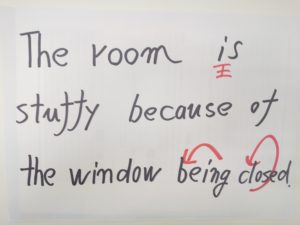 The room is
stuffy because of
the window being closed.